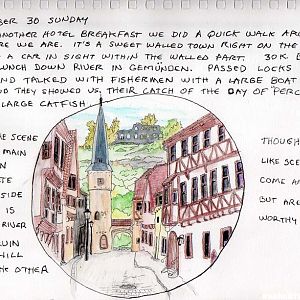 BER 30 SUNDAY
NOTHER HOTEL BREAKFAST WE DID A QUICK WALK AR
RE WE ARE. IT'S A SWEET WALLED TOWN RIGHT ON THE
A CAR IN SIGHT WITHIN THE WALLED PART. 30K
LUNCH DOWN RIVER IN GEMÜNDEN. PASSED LOCKS
AND TALKED WITH FISHERMEN WITH A LARGE BOAT
THEY SHOWED US THEIR CATCH OF THE DAY OF PERC
LARGE CATFISH.
HE SCENE
MAIN
N
TE
SIDE
IS
RIVER
UIN
HILL
HE OTHER
THOUGH
LIKE SCE
COME A
BUT ARE
WORTHY